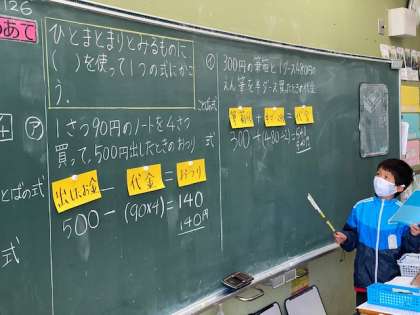 126
めあて
ひとまとまりとみるものに
( )を使って1つの式にかこ
う。
㋐
1さつ90円のノートを4さつ
買って、500円出したときのおつり
ことばの式
出したお金 - 代金 = おつり
式
500-(90×4)=140
140円
300円の筆箱と1ダース480円の
えん筆を半ダース買ったときの代金
ことば式
式
代金
300+(480÷2)=540